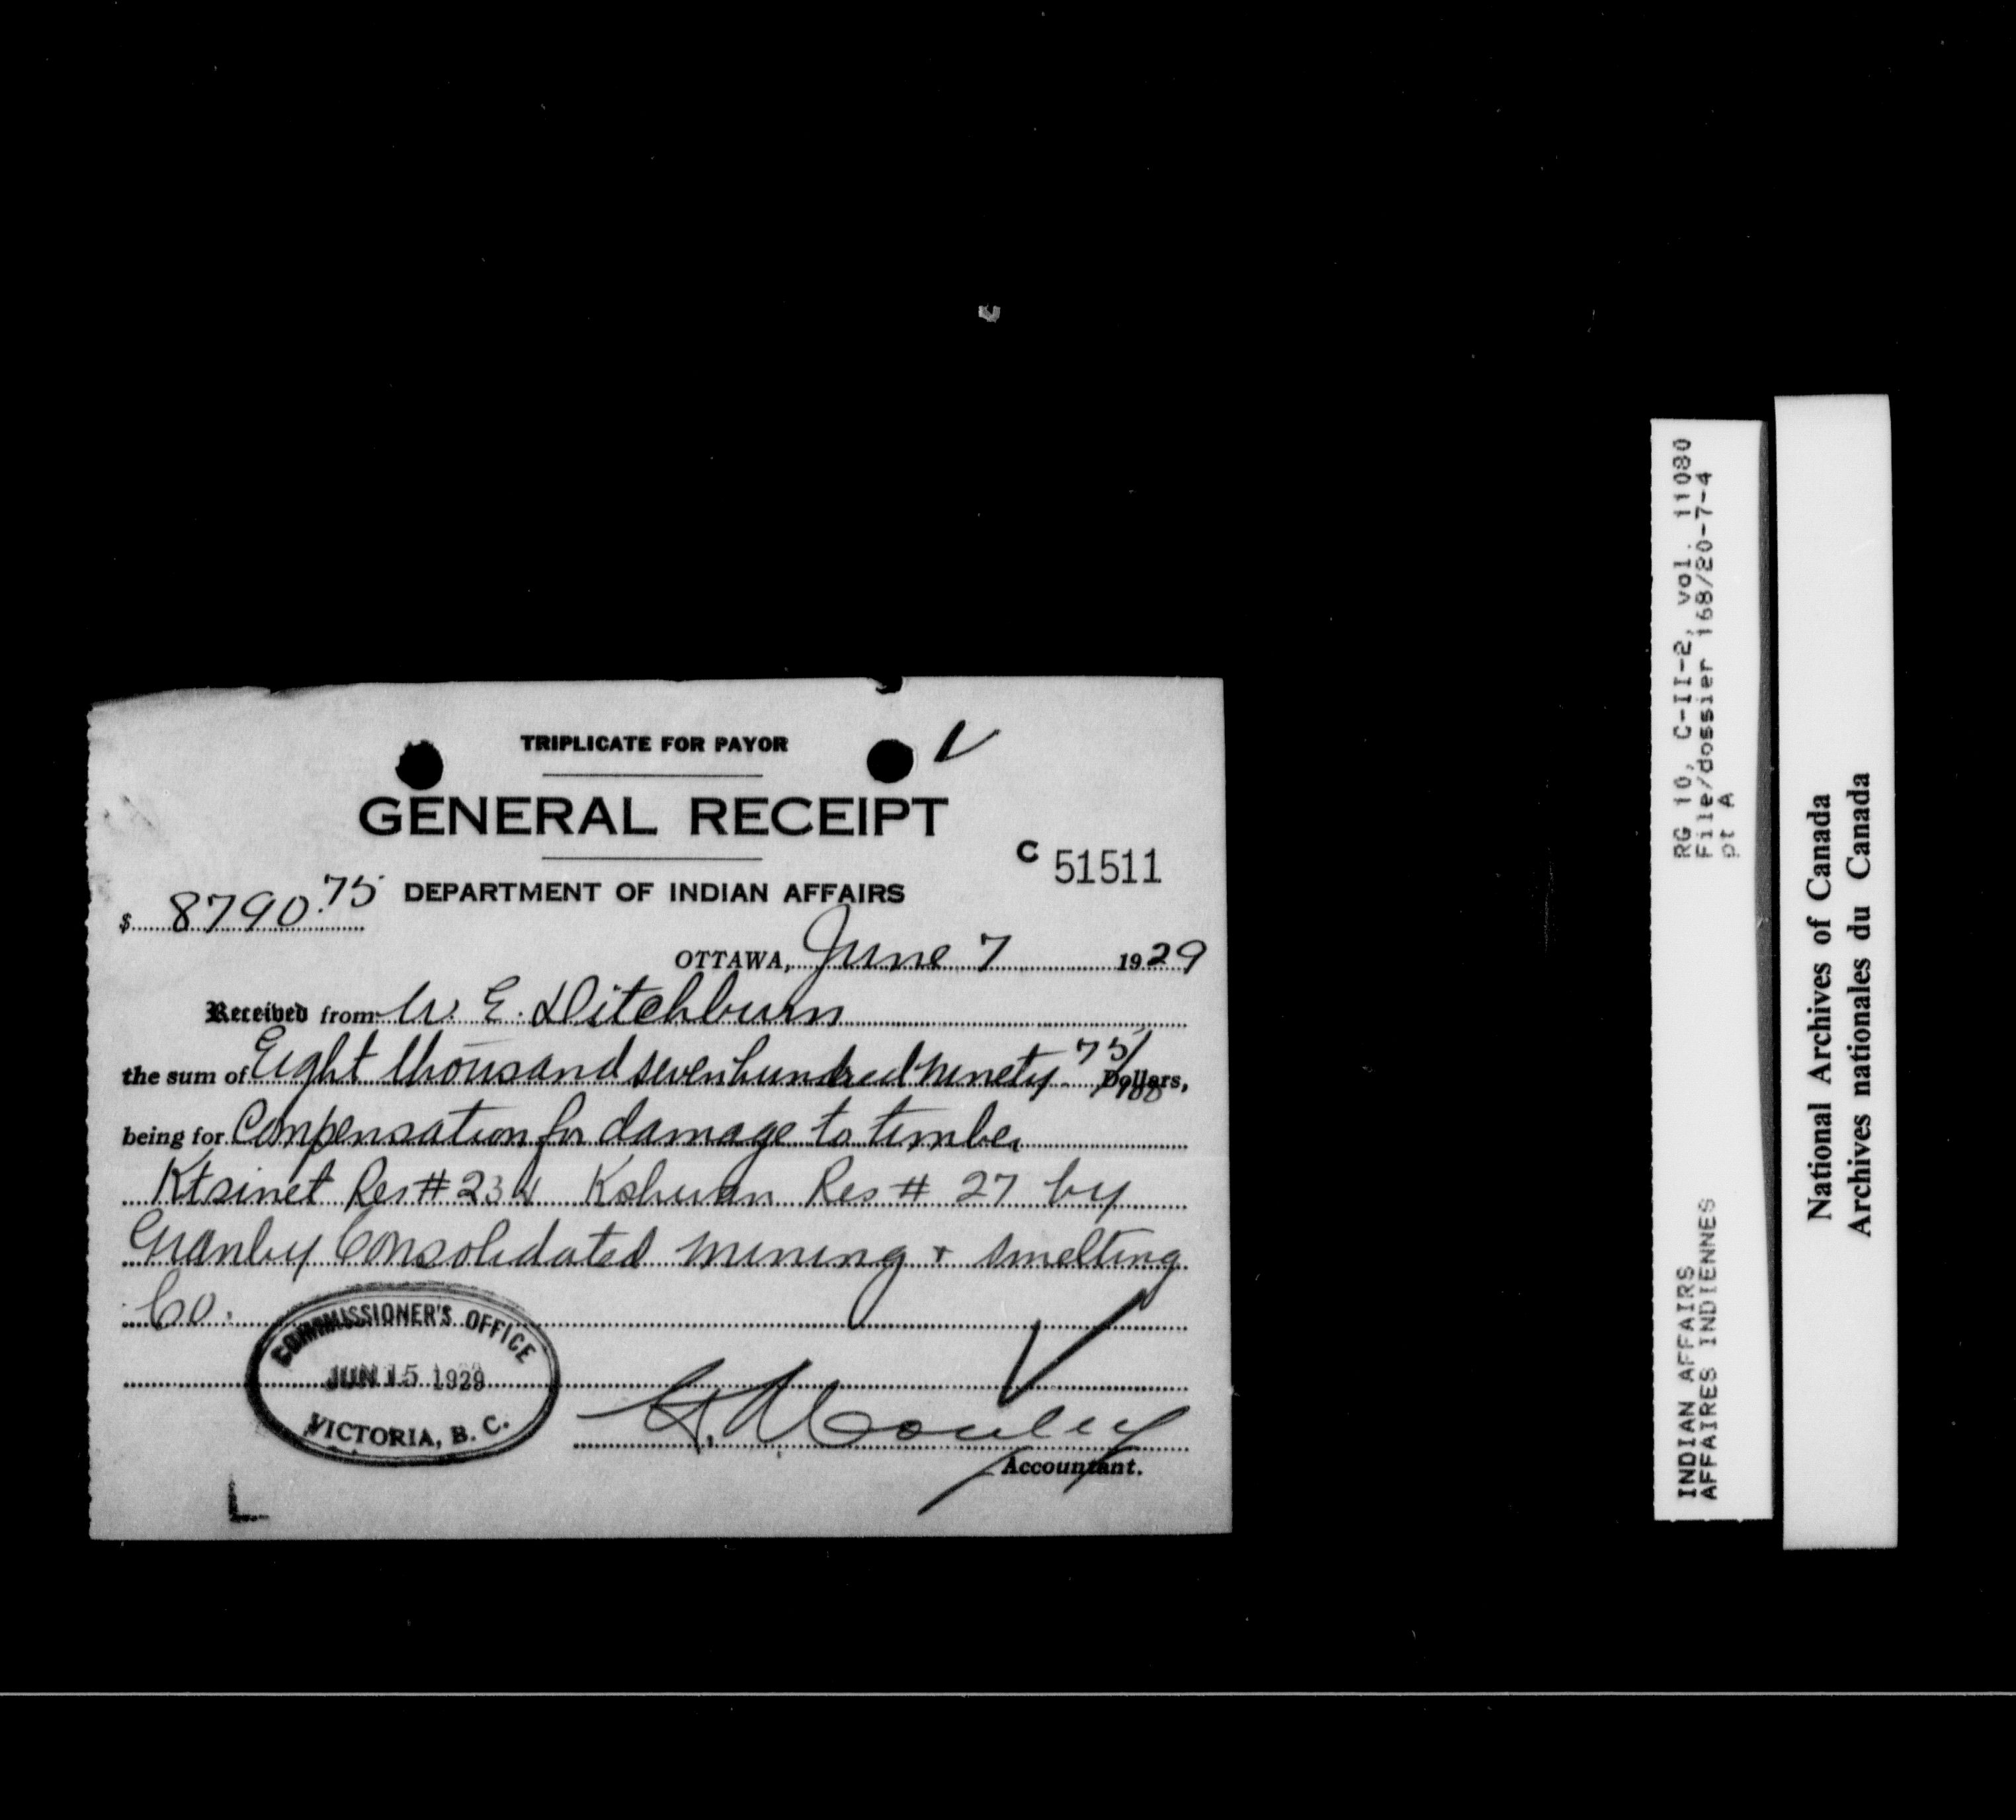 TRIPLICATE FOR PAYOR
GENERAL RECEIPT
C 51511
$ 8790.75 DEPARTMENT OF INDIAN AFFAIRS
OTTAWA, June 7 1929
Received from W. E. Ditchburn
the sum of Eight thousand seven hundred ninety 75/100 Dollars,
being for Compensation for damage to timber
Ktsinet Res # 23 & Kshwan Res # 27 by
Granby Consolidated Mining + Smelting
Co.
COMMISSIONER'S OFFICE
JUN 15 1929
VICTORIA, B. C.
Accountant.
RG 10, C-II-2, vol. 11080
File/dossier 168/20-7-4
pt A
INDIAN AFFAIRS
AFFAIRES INDIENNES
National Archives of Canada
Archives nationales du Canada